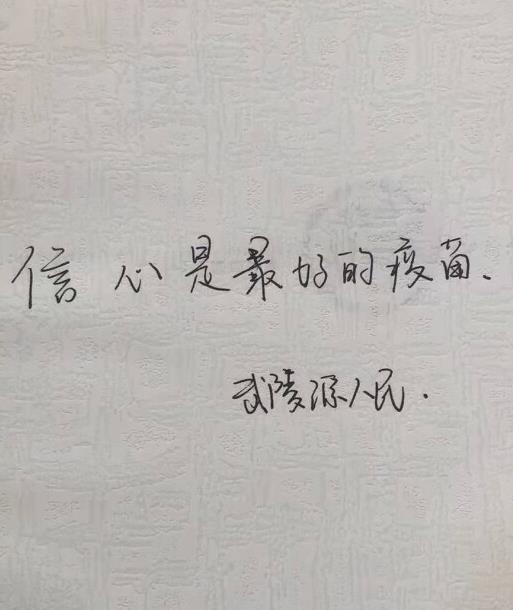 信心是最好的疫苗.
武陵源人民.